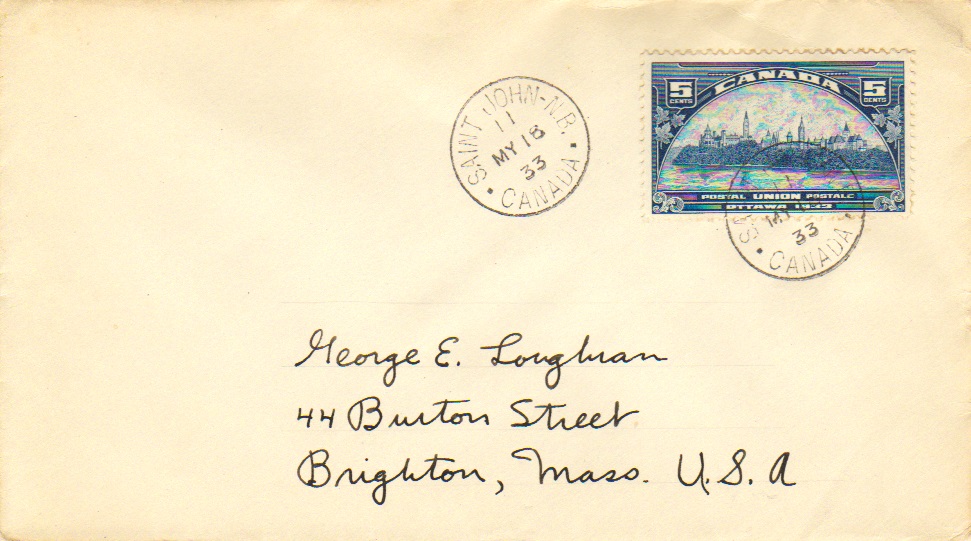 SAINT JOHN-N.B.
11
MY 18
33
CANADA
5 CANADA 5
CENTS CENTS
POSTAL UNION POSTALE
OTTAWA 1933
MY
33
CANADA
George E. Loughran
44 Burton Street
Brighton, Mass. U.S.A